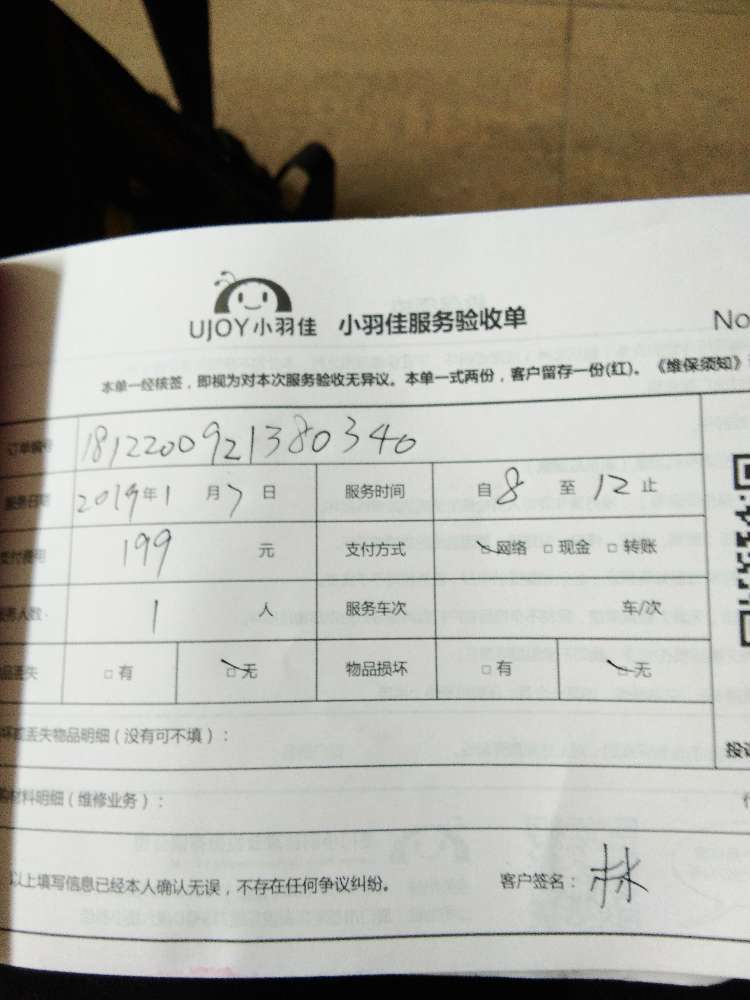 UJOY小羽佳 小羽佳服务验收单 No
本单一经核签，即视为对本次服务验收无异议。本单一式两份，客户留存一份(红)。《维保须知》
订单编号 1812200921380340
服务日期 2019年1月7日 服务时间 自8至12止
支付费用 199元 支付方式 □网络 □现金 □转账
服务人数 1人 服务车次 车/次
物品丢失 □有 □无 物品损坏 □有 □无
坏或丢失物品明细(没有可不填)： 投诉
材料明细(维修业务)：
以上填写信息已经本人确认无误，不存在任何争议纠纷。 客户签名：林